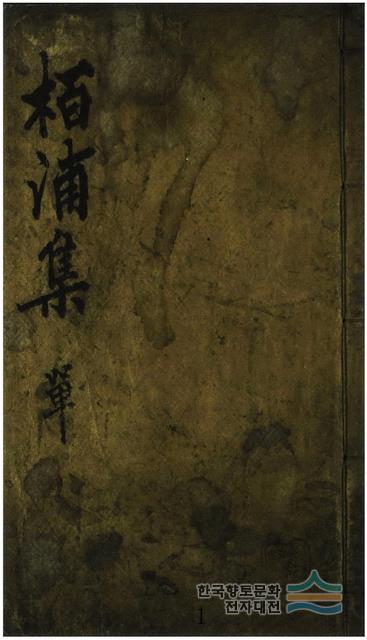 栢浦集
單
한국향토문화
전자대전
1